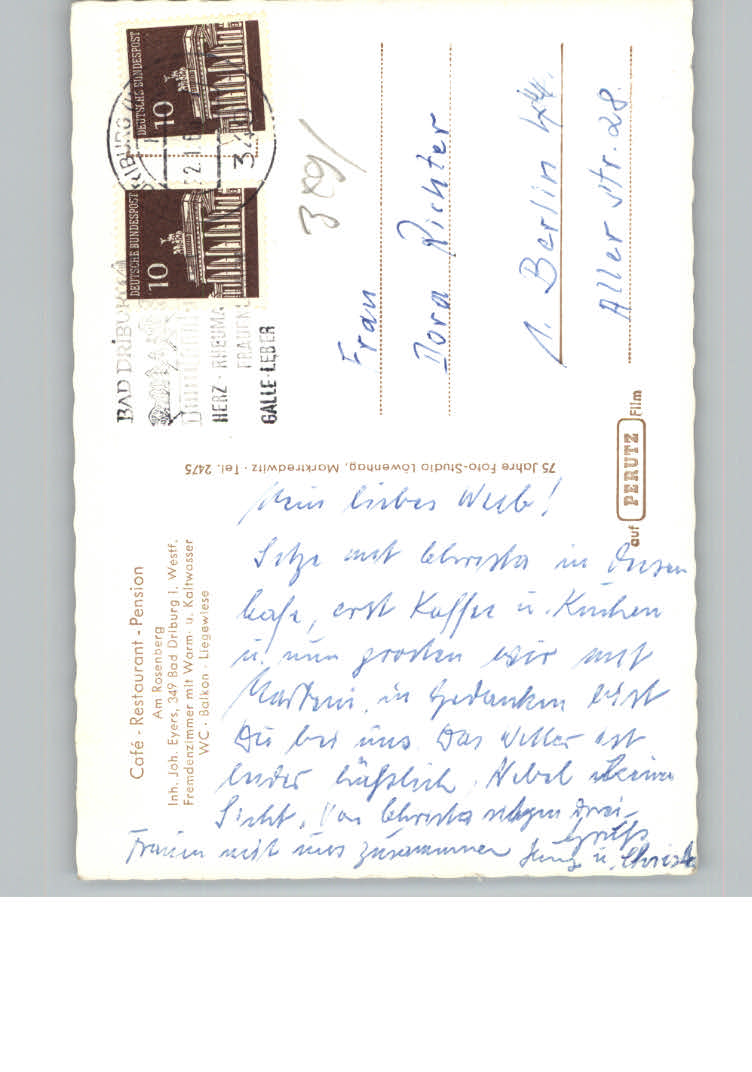 Café - Restaurant - Pension
Am Rosenberg
Inh. Joh. Eyers, 349 Bad Driburg i. Westf.
Fremdenzimmer mit Warm- u. Kaltwasser
WC - Balkon - Liegewiese
Mein liebes Weib!
Sitze mit Christa in
erst Kaffee u. Kuchen
u. nun prosten wir mit
Martini, in Gedanken bist
Du bei uns. Das Wetter ist
leider häßlich, Nebel keine
Sicht. Von Christa
Frauen mit uns zusammen
u. Christa
75 Jahre Foto-Studio Löwenhag, Marktredwitz - Tel. 2475
auf PERUTZ Film
DEUTSCHE BUNDESPOST
10
DEUTSCHE BUNDESPOST
10
BAD DRIBURG
HERZ · RHEUMA
FRAUEN
GALLE · LEBER
Frau
Dora Richter
1. Berlin 44.
Aller Str. 28.